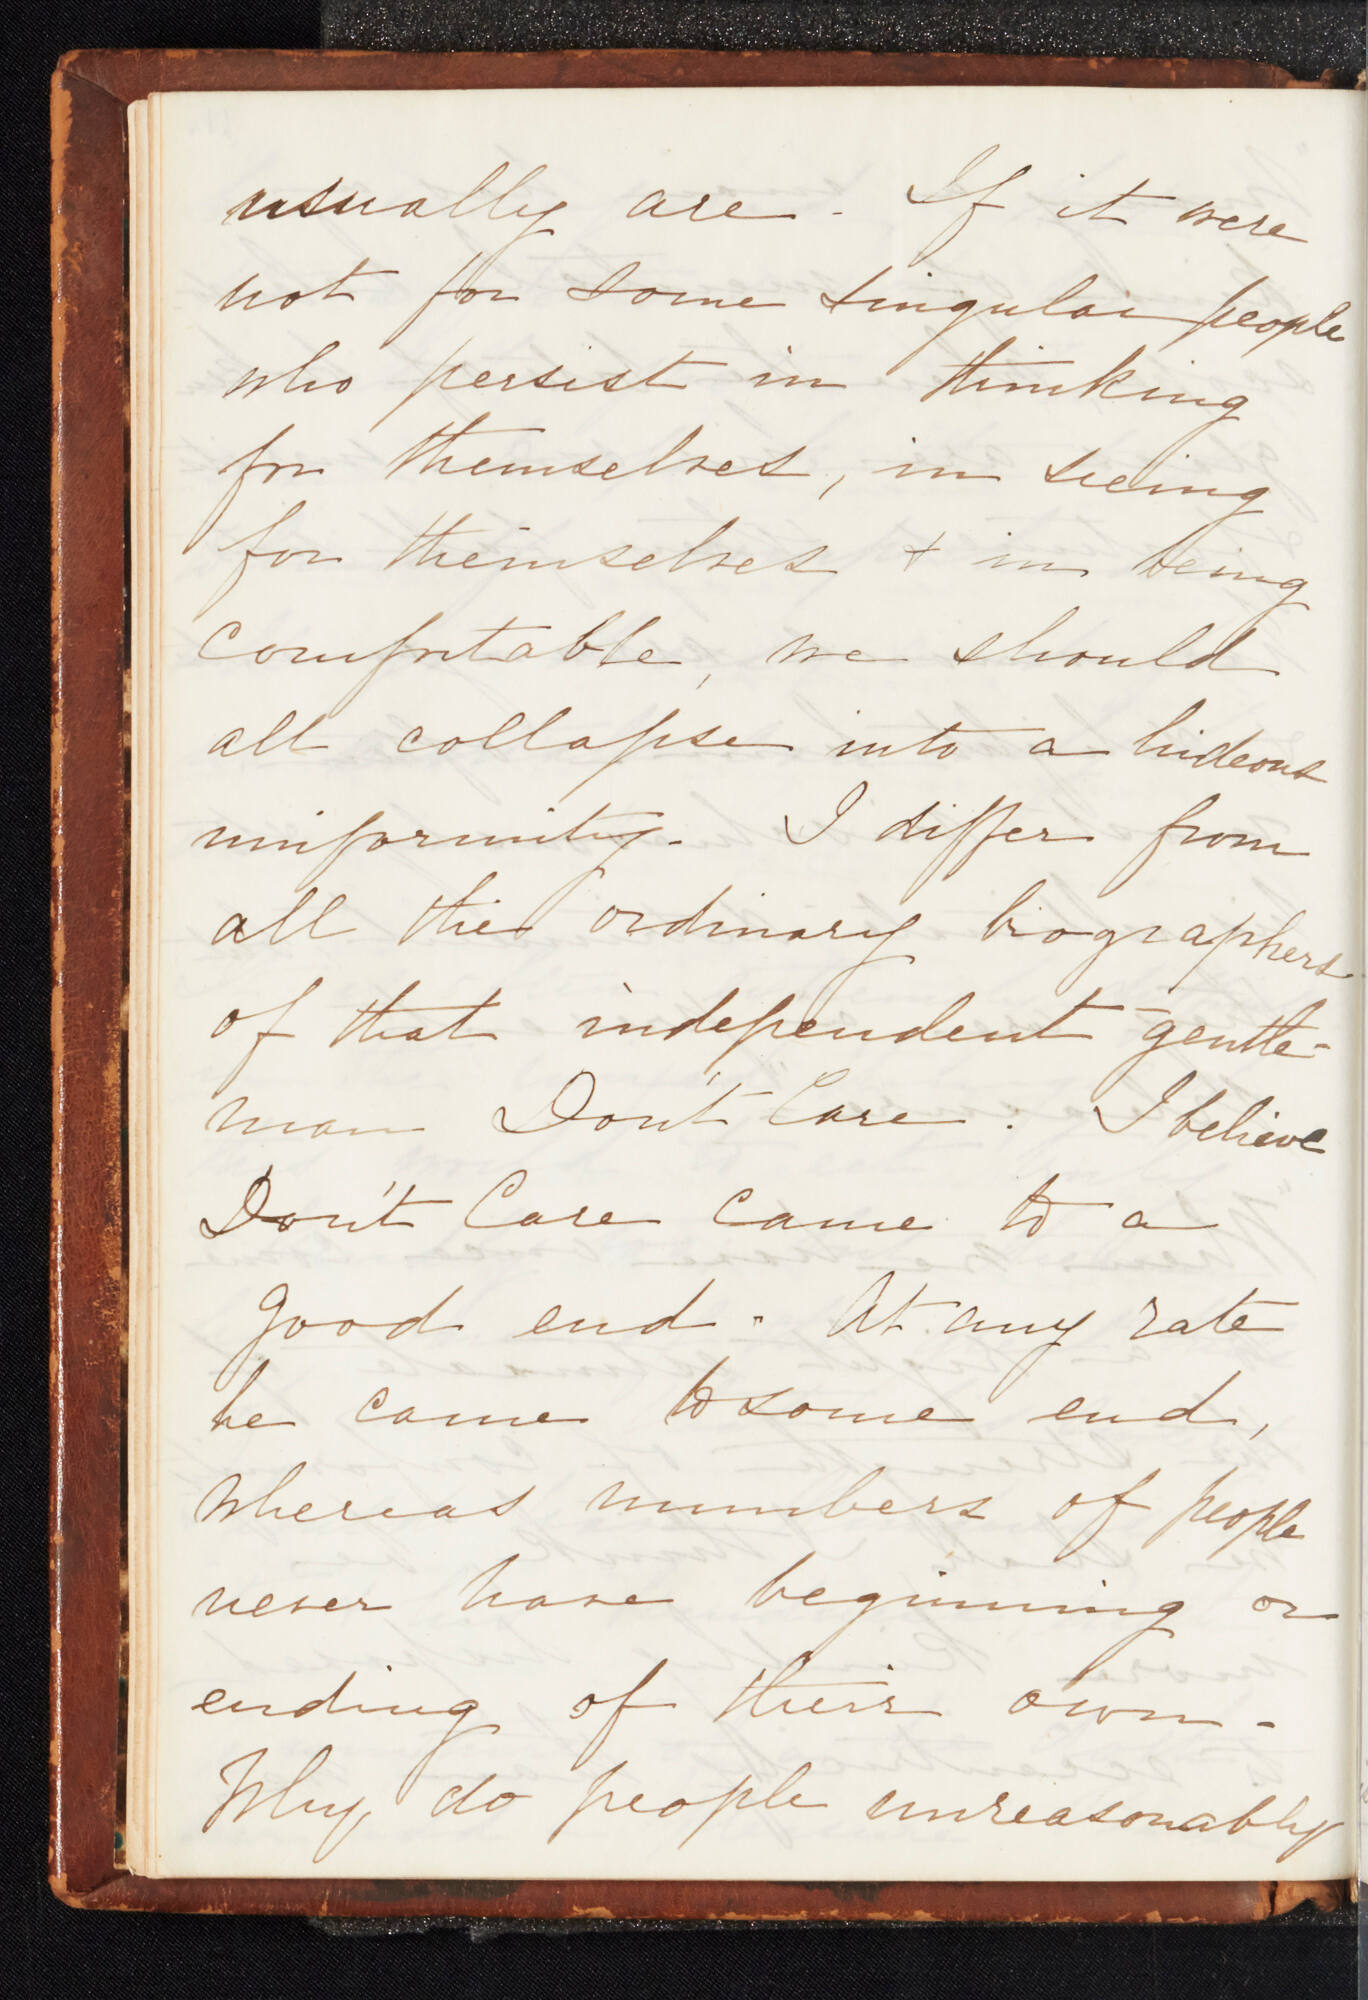 usually are. If it were
not for some singular people
who persist in thinking
for themselves, in seeing
for themselves + in being
comfortable, we should
all collapse into a hideous
uniformity. I differ from
all the ordinary biographers
of that independent gentle-
man Don't Care. I believe
Don't Care came to a
good end. At any rate
he came to some end,
whereas numbers of people
never have beginning or
ending of their own.
Why do people unreasonably